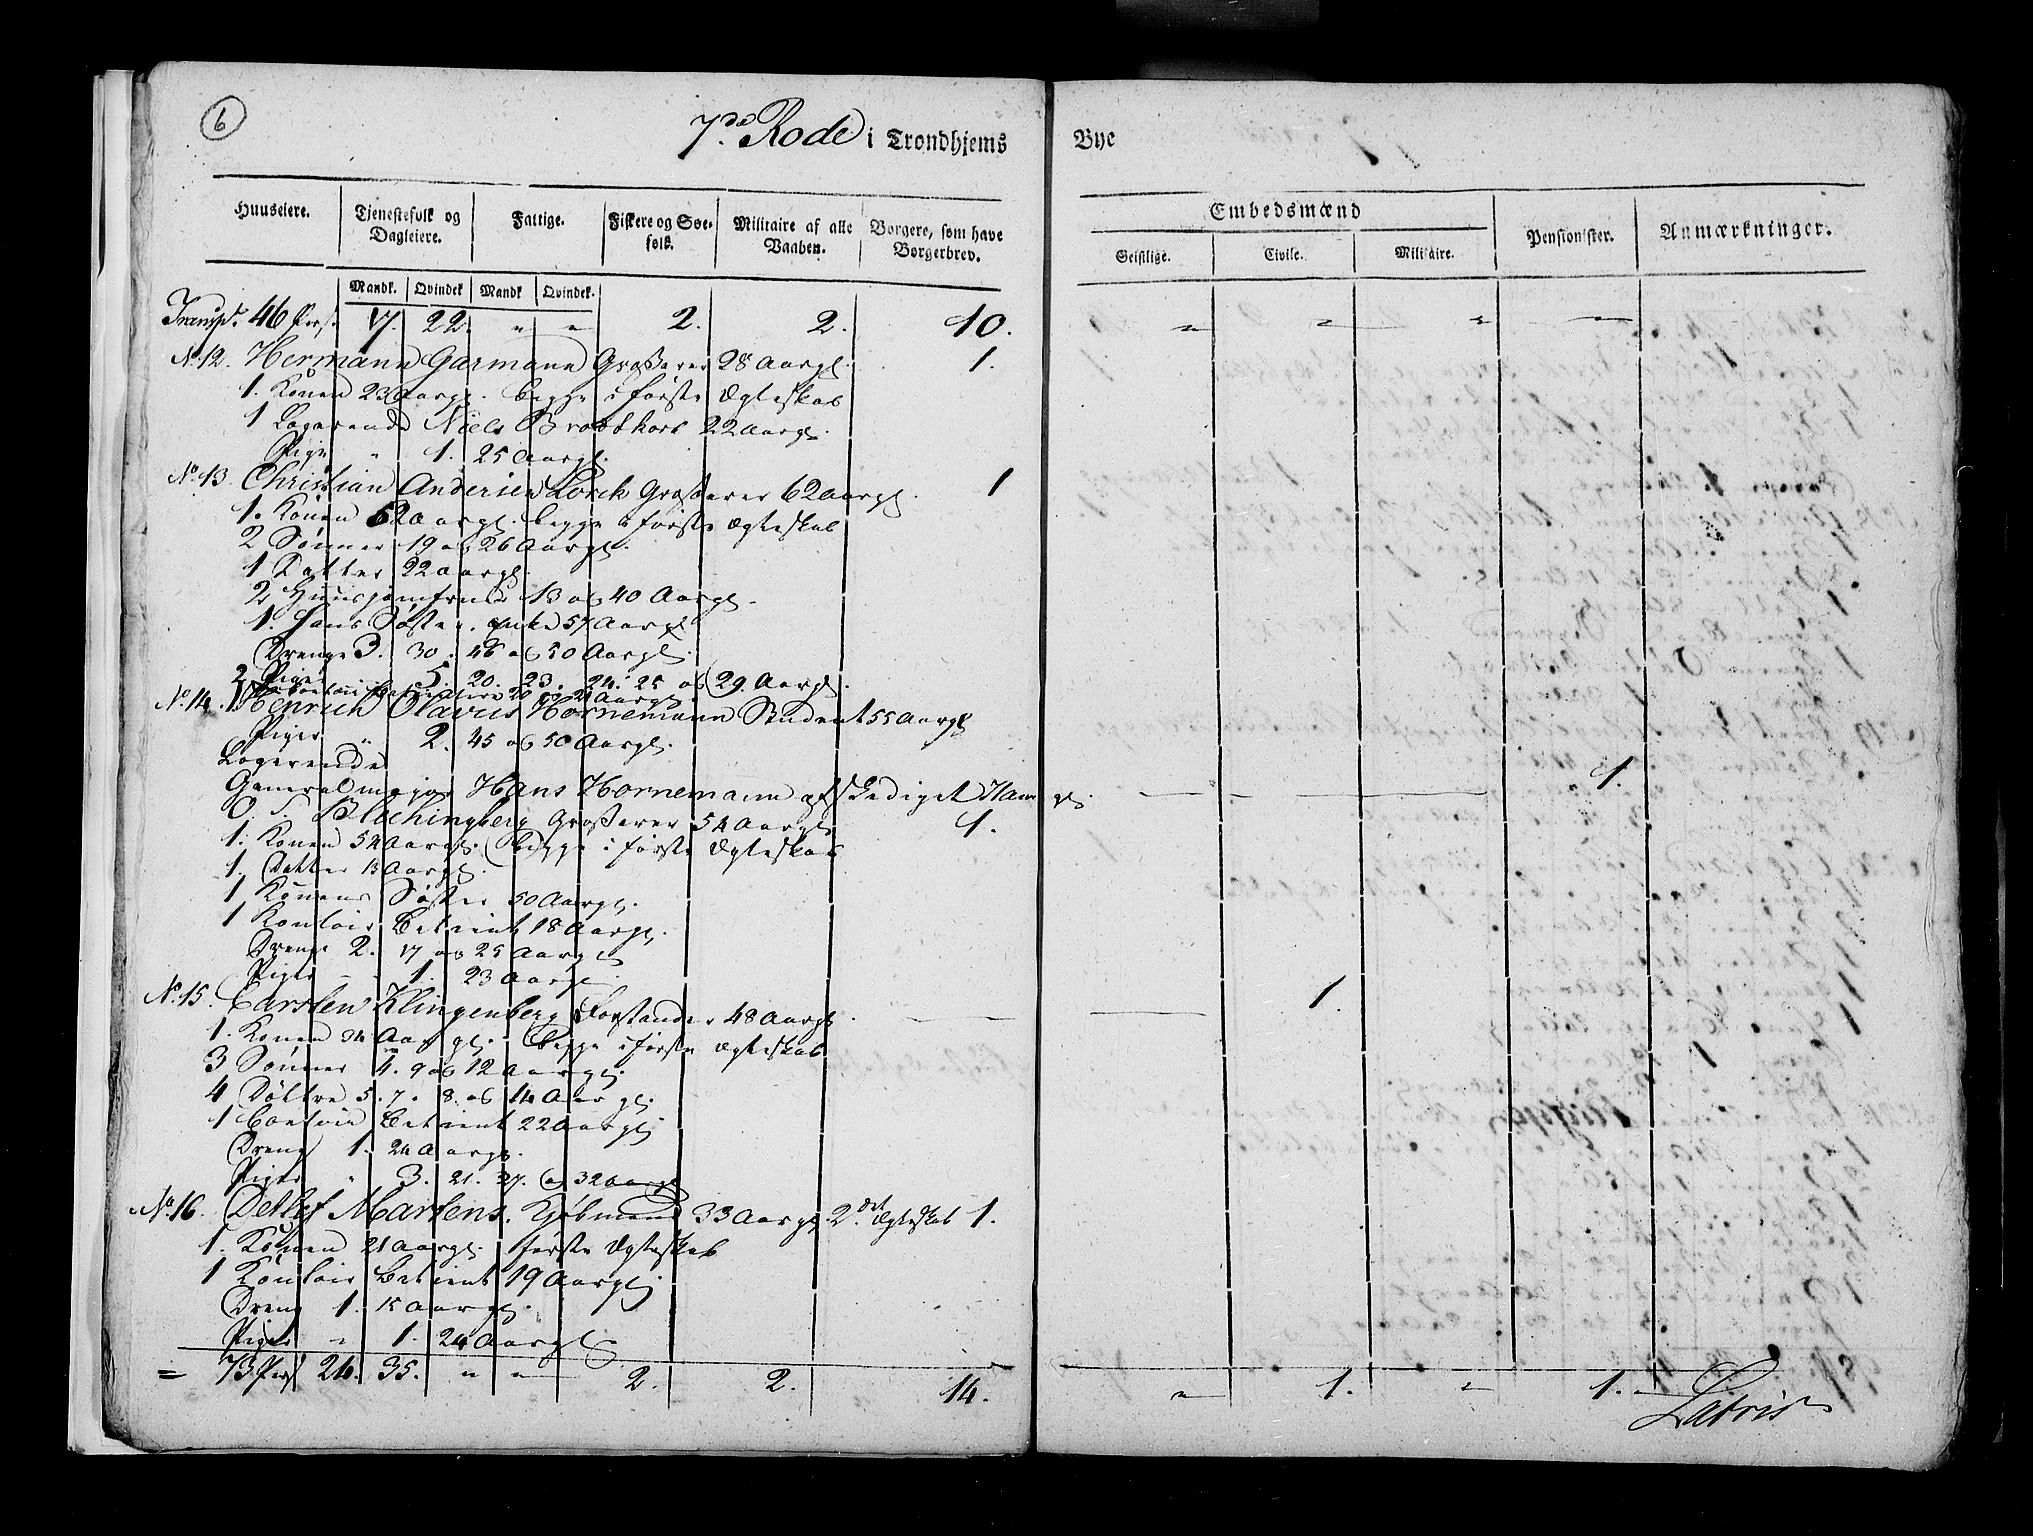 6
7de Rode i Trondhjems Bye
Huuseiere. Tjenestefolk og Dagleiere. Fattige. Fiskere og Søefolk. Militaire af alle Vaaben. Borgere, som have Borgerbrev. Embedsmænd Pensionister. Anmærkninger.
Geistlige. Civile. Militaire.
Mandk. Qvindek Mandk Qvindek.
Transpt. 46 Pers. 17. 22. " " 2. 2. 10. " " " "
No. 12. Hermann Garmann Grosserer 28 Aargl. 1.
1. Konen 23 Aargl. begge i første Ægteskab
1 Logerende Niels Brodtkorb 22 Aargl.
Pige " 1. 25 Aargl.
No. 13. Christian Andersen Lorck Grosserer 62 Aargl. 1
1. Konen 52 Aargl. begge i første Ægteskab
2 Sønner 19 og 26 Aargl.
1 Datter 22 Aargl.
2 Huusjomfruer 13 og 40 Aargl.
1. Hans Søster, enke 57 Aargl
Drenge 3. 30. 46 og 50 Aargl.
Piger 5. 20. 23. 24. 25 og 29. Aargl.
2 Contoir 20 og 21 Aargl.
No. 14. Henrich Olavus Hornemann Student 55 Aargl
Piger " 2. 45 og 50 Aargl.
Logerende
Generalmajor Hans Hornemann afskediget Aargl. 1.
O. S. Blechingberg Grosserer 54 Aargl 1.
1. Konen 54 Aargl. Begge i første Ægteskab
1. Datter 13 Aargl.
1 Konens Søster 50 Aargl.
1 Kontoir Betient 18 Aargl.
Drenge 2. 17 og 25 Aargl
Piger 1. 23 Aargl
No. 15. Carsten Klingenberg Forstander 48 Aargl. 1.
1. Konen 34 Aargl. Begge i første Ægteskab
3 Sønner 4. 9 og 12 Aargl.
4 Døttre 5. 7. 8. og 14 Aargl.
1 Contoir Betient 22 Aargl
Dreng 1. 24 Aargl.
Piger " 3. 21. 27. og 32 Aargl
No. 16. Detlef Martens. Kjøbmand 33 Aargl. 2det Ægteskab 1.
1. Konen 21 Aargl. første Ægteskab
1 Kontoir Betient 19 Aargl.
Dreng 1. 15 Aargl.
Piger " 1. 24 Aargl
= 73 Pers 24. 35. " " 2. 2. 14. " 1. " 1. Latris